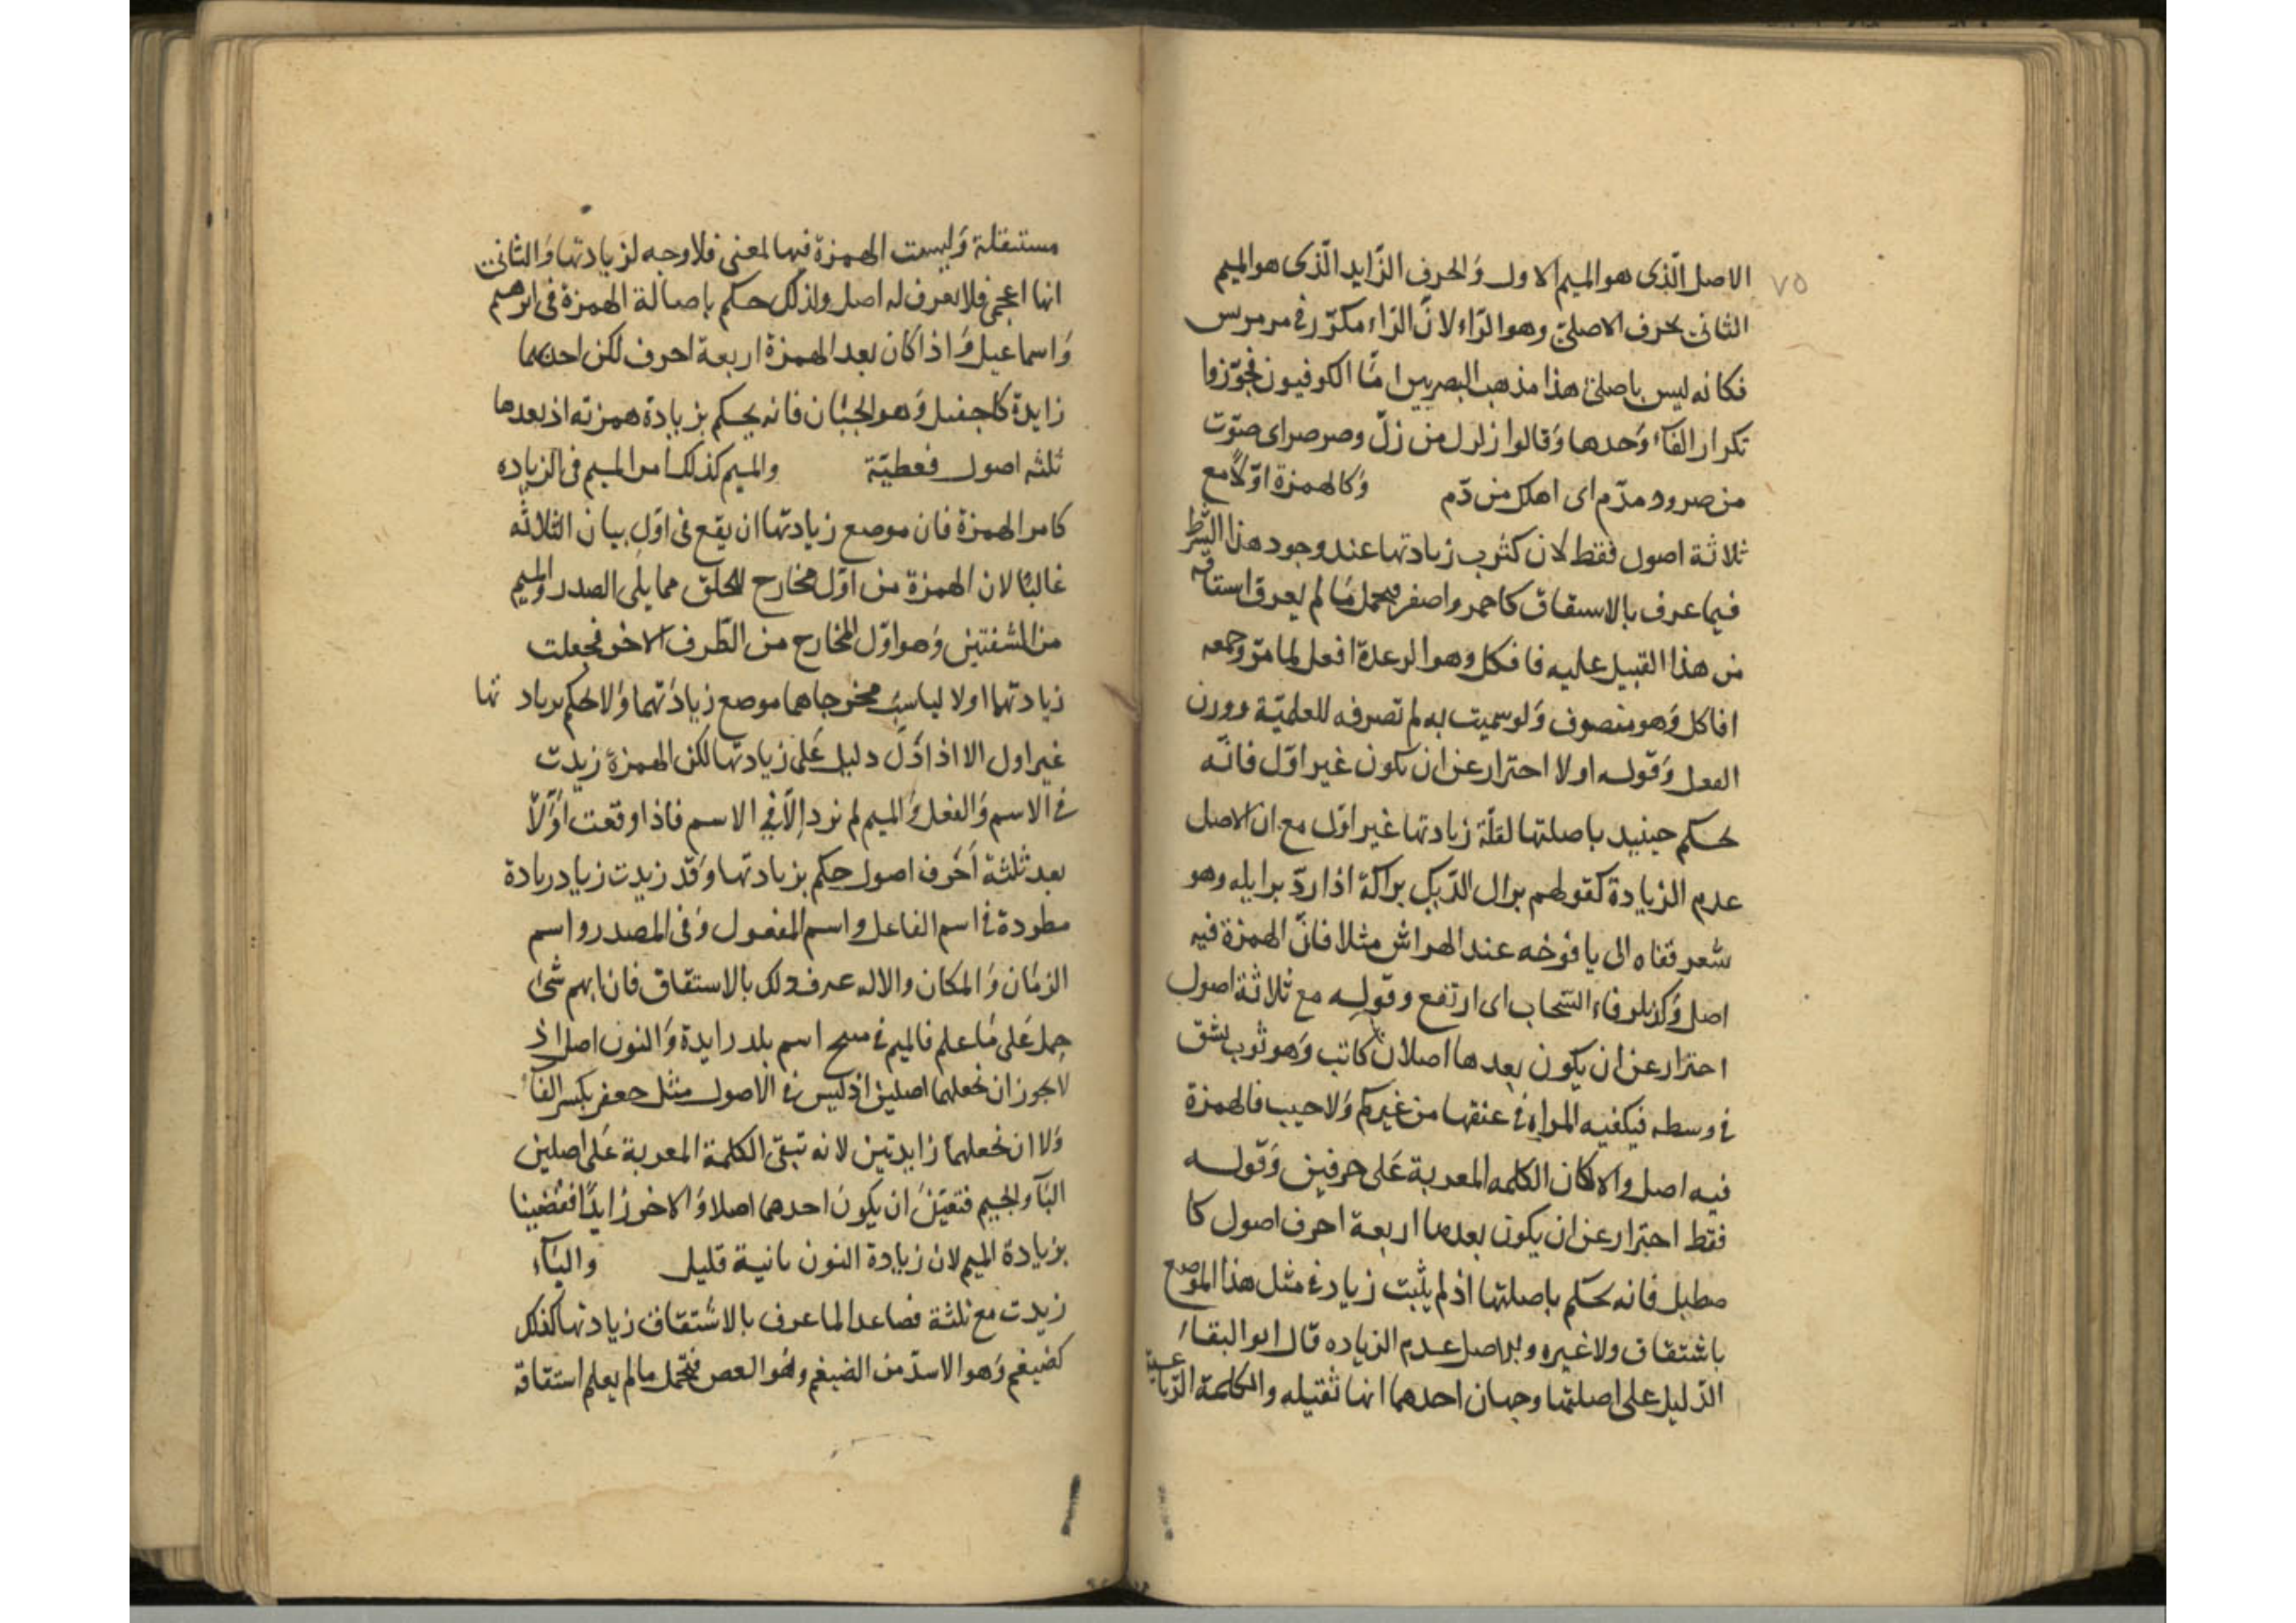 ٧٥
الاصل الّذى هو الميم الاول وَالحرف الزّايد الّذى هو الميم
الثانى بحرف الاصلىّ وهو الرّاء لانّ الرّاء مكرّر فى مرمريس
فكانه ليس باصلىّ هذا مذهب البصريين امّا الكوفيون فجوّزوا
تكرار الفآء وَحدها وَقالوا زلزل من زلّ وصرصر اى صوّت
من صر ودمدم اى اهلك من دّم وَكالهمزة اوّلاً مع
ثلاثة اصول فقط لان كثرت زيادتها عند وجود هذا الشرط
فيما عرف بالاستقاق كاحمر واصفر فيحمل مَا لم يعرف استاقه
من هذا القبيل عليه فافكل وهو الرعدة افعل لما مرّ وجمعه
افاكل وَهو منصرف وَلو سميت به لم تصرفه للعلميّة ووزن
الفعل وَقوله اولا احتراز عن ان يكون غير اوّل فانّه
يحكم حينيد باصلتها لقلّة زيادتها غير اوّل مع ان الاصل
عدم الزيادة كقولهم برال الدّيك براكة اذا ردّ برايله وهو
شعر قفاه الى يافوخه عند الهراش مثلا فانّ الهمزة فيه
اصل وَكذلك كرفاء السّحاب اى ارتفع وقوله مع ثلاثة اصول
احتراز عن ان يكون بعدها اصلان كاتب وَهو ثوب يشق
فى وسطه فيكفيه المراة فى عنقها من غير كم وَلا جيب فالهمزة
فيه اصل والا لكان الكلمه المعربة عَلى حرفين وَقوله
فقط احتراز عن ان يكون بعدها اربعة احرف اصول كا
صطبل فانه يحكم باصلتها اذ لم يثبت زيادة فى مثل هذا الموضع
باشتقاق ولا غيره والاصل عدم الزياده قال ابو البقاء
الدّليل على اصلتها وجهان احدهما انها ثقتيله والكلمة الرّباعية
مستثقلة وَليست الهمزة فيها لمعنى فلا وجه لزيادتها وَالثانى
انها اعجمى فلا يعرف له اصل ولذلك حكم باصالة الهمزة فى ابرهيم
وَاسماعيل وَاذا كان بعد الهمزة اربعة احرف لكن احدهما
زايدة كاجفيل وَهو الجبَان فانه يحكم بزيادة همزته اذ بعدها
ثلثه اصول فعطيّة والميم كذلك امر الميم فى الزياده
كامر الهمزة فان موضع زيادتها ان يقع فى اوّل بيان الثلاثه
غالبًا لان الهمزة من اوّل مخارج الحلق مما يلى الصدر والميم
من الشفتين وَهو اوّل المخارج من الطّرف الاخر فجعلت
زيادتهما اولا ليناسبَ مخرجاهما موضع زيادتهما وَلا يحكم بزيادتها
غير اول الا اذا دَلّ دليل عَلى زيادتها لكن الهمزة زيدت
فى الاسم وَالفعل وَالميم لم نزد اِلاّ فى الاسم فاذا وقعت اوّلاّ
بعد ثلثة اَحَرف اصول حكم بزيادتها وَقد زيدت زيا دريادة
مطردة فى اسم الفاعل واسم المفعول وَفى المصدر واسم
الزمَان وَالمكان والاله عرف ذلك بالاستقاق فان ابهم شئ
حمل عَلى مَا علم فالميم فى منبج اسم بلد زايدة وَالنون اصل اذ
لا يجوز ان نجعلهما اصلين اذ ليس فى الاصول مثل جعفر بكسر الفآء
وَلا ان نجعلهمَا زايدتين لانه تبقى الكلمة المعربة عَلى اصلين
البآ والجيم فتعيّنَ ان يكونَ احدهما اصلا وَالاخر زايدًا فقضينا
بزيادة الميم لان زيادة النون ثانية قليل واليَآء
زيدت مع ثلثة فصاعدا لما عرف بالاشتقاق زيادتها كفلك
كضيغم وَهو الاسد من الضيغم وهو العض فيحمل ما لم يعلم استقاقه